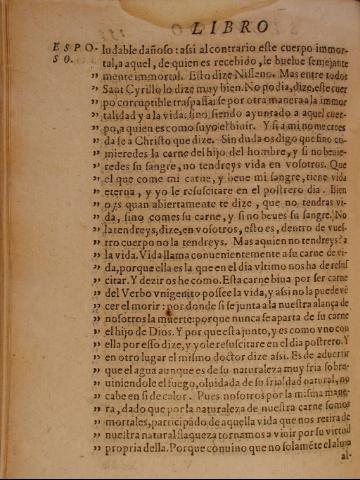 LIBRO
ESPO-
SO.
ludable dañoso: assi al contrario este cuerpo immor-
tal, a aquel, de quien es recebido, le buelue semejante
mente immortal. Esto dize Nisseno. Mas entre todos
Sant Cyrillo lo dize muy bien. No podia, dize, este cuer
po corruptible traspassarse por otra manera a la immor
talidad y a la vida: sino siendo ayuntado a aquel cuer-
po, a quien es como suyo el biuir. Y si a mi no me crees
da fe a Christo que dize. Sin duda os digo que sino co-
mieredes la carne del hijo del hombre, y si no beuie-
redes su sangre, no tendreys vida en vosotros. Que
el que come mi carne, y beue mi sangre, tiene vida
eterna, y yo le resuscitare en el postrero dia. Bien
oys quan abiertamente te dize, que no tendras vi-
da, sino comes su carne, y si no beues su sangre. No
la tendreys, dize, en vosotros, esto es, dentro de vues-
tro cuerpo no la tendreys. Mas a quien no tendreys? a
la vida. Vida llama conuenientemente a su carne de vi-
da, porque ella es la que en el dia vltimo nos ha de resus
citar. Y deziros he como. Esta carne biua por ser carne
del Verbo vnigenito possee la vida, y assi no la puede vē
cer el morir: por donde si se junta a la nuestra alança de
nosotros la muerte: porque nunca se aparta de su carne
el hijo de Dios. Y por que esta junto, y es como vno con
ella por esso dize, y yo le resuscitare en el dia postrero. Y
en otro lugar el mismo doctor dize assi. Es de aduertir
que el agua aunque es de su naturaleza muy fria sobre-
uiniendole el fuego, oluidada de su frialdad natural, no
cabe en si de calor. Pues nosotros por la misma mane-
ra, dado que por la naturaleza de nuestra carne somos
mortales, participādo de aquella vida que nos retira de
nuestra natural flaqueza tornamos a viuir por su virtud
propria della. Porque conuino que no solamēte el alma
al-